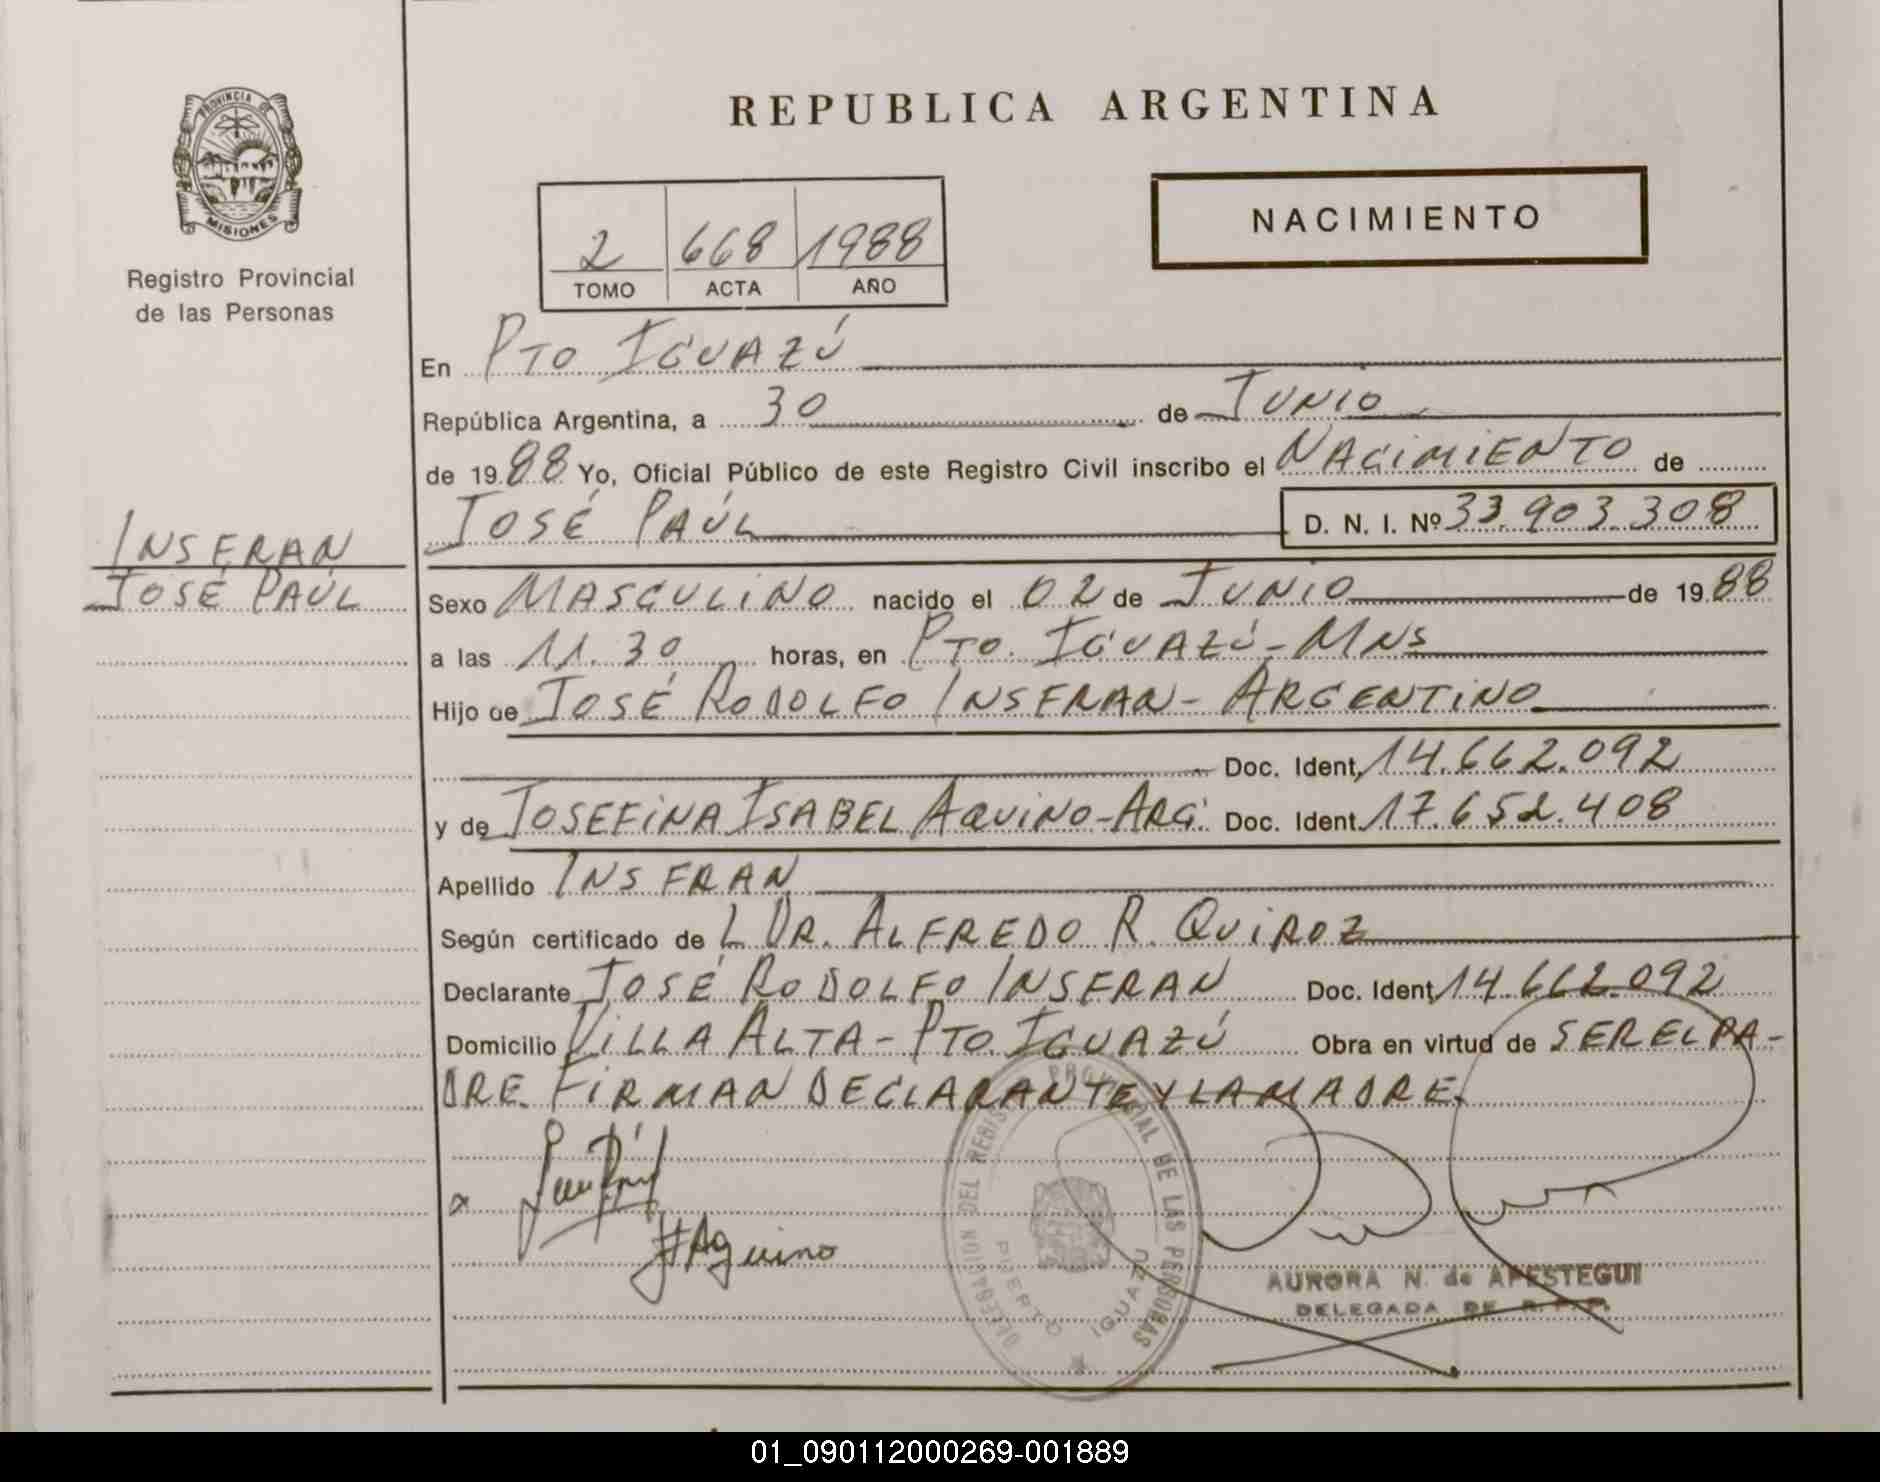 PROVINCIA DE
MISIONES
Registro Provincial
de las Personas
INSFRAN
JOSÉ PAÚL
REPUBLICA ARGENTINA
NACIMIENTO
2 668 1988
TOMO ACTA AÑO
En PTO IGUAZÚ
República Argentina, a 30 de JUNIO
de 1988 Yo, Oficial Público de este Registro Civil inscribo el NACIMIENTO de
JOSÉ PAÚL D. N. I. Nº 33.903.308
Sexo MASCULINO nacido el 02 de JUNIO de 1988
a las 11.30 horas, en PTO. IGUAZÚ-MNS
Hijo de JOSÉ RODOLFO INSFRAN - ARGENTINO
Doc. Ident. 14.662.092
y de JOSEFINA ISABEL AQUINO-ARG. Doc. Ident. 17.652.408
Apellido INSFRAN
Según certificado de L DR. ALFREDO R. QUIROZ
Declarante JOSÉ RODOLFO INSFRAN Doc. Ident. 14.662.092
Domicilio VILLA ALTA - PTO. IGUAZÚ Obra en virtud de SER EL PA-
DRE. FIRMAN DECLARANTE Y LA MADRE.
x
Aquino
DELEGACION DEL REGISTRO PROVINCIAL DE LAS PERSONAS
PUERTO IGUAZU
AURORA N. de APESTEGUI
DELEGADA DE R.P.P.
01_090112000269-001889